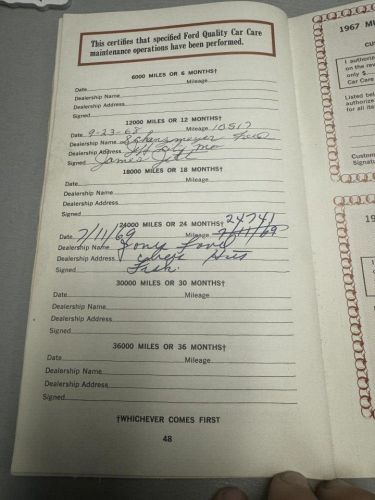 This certifies that specified Ford Quality Car Care
maintenance operations have been performed.
6000 MILES OR 6 MONTHS†
Date Mileage
Dealership Name
Dealership Address
Signed
12000 MILES OR 12 MONTHS†
Date 9-23-68 Mileage 10517
Dealership Name Ford
Dealership Address Jeff City Mo
Signed James
18000 MILES OR 18 MONTHS†
Date Mileage
Dealership Name
Dealership Address
Signed
24000 MILES OR 24 MONTHS† 24741
Date 7/11/69 Mileage 7/11/69
Dealership Name Tony Ford
Dealership Address
Signed
30000 MILES OR 30 MONTHS†
Date Mileage
Dealership Name
Dealership Address
Signed
36000 MILES OR 36 MONTHS†
Date Mileage
Dealership Name
Dealership Address
Signed
†WHICHEVER COMES FIRST
48
1967
I authoriz
on the rev
only $
Car Care
Listed bel
authorize
for all ite
Custom
Signatu
19